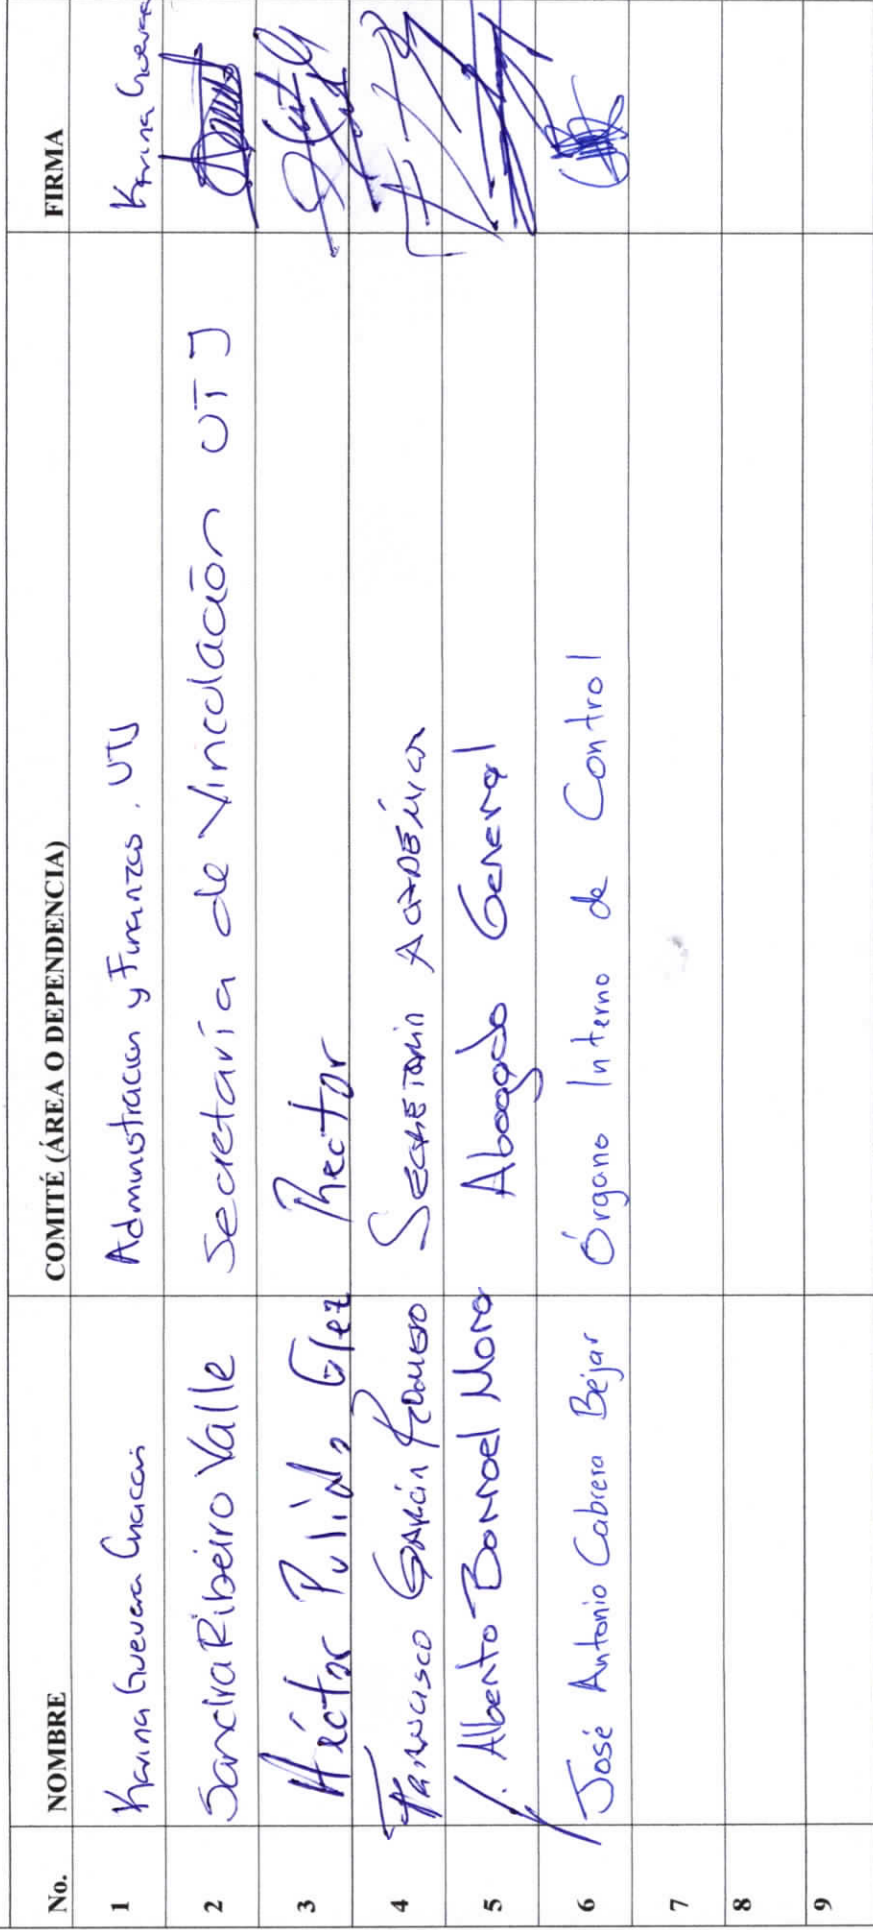 No. NOMBRE COMITÉ (ÁREA O DEPENDENCIA) FIRMA
1 Karina Guevara Chacón Administracion y Finanzas. UTJ Karina Guevara
2 Sandra Ribeiro Valle Secretaría de Vinculación UTJ
3 Héctor Pulido Glez Rector
4 Francisco García Romero Secretaria Académica
5 Alberto Bonroel Mora Abogado General
6 José Antonio Cabrera Bejar Órgano Interno de Control
7
8
9